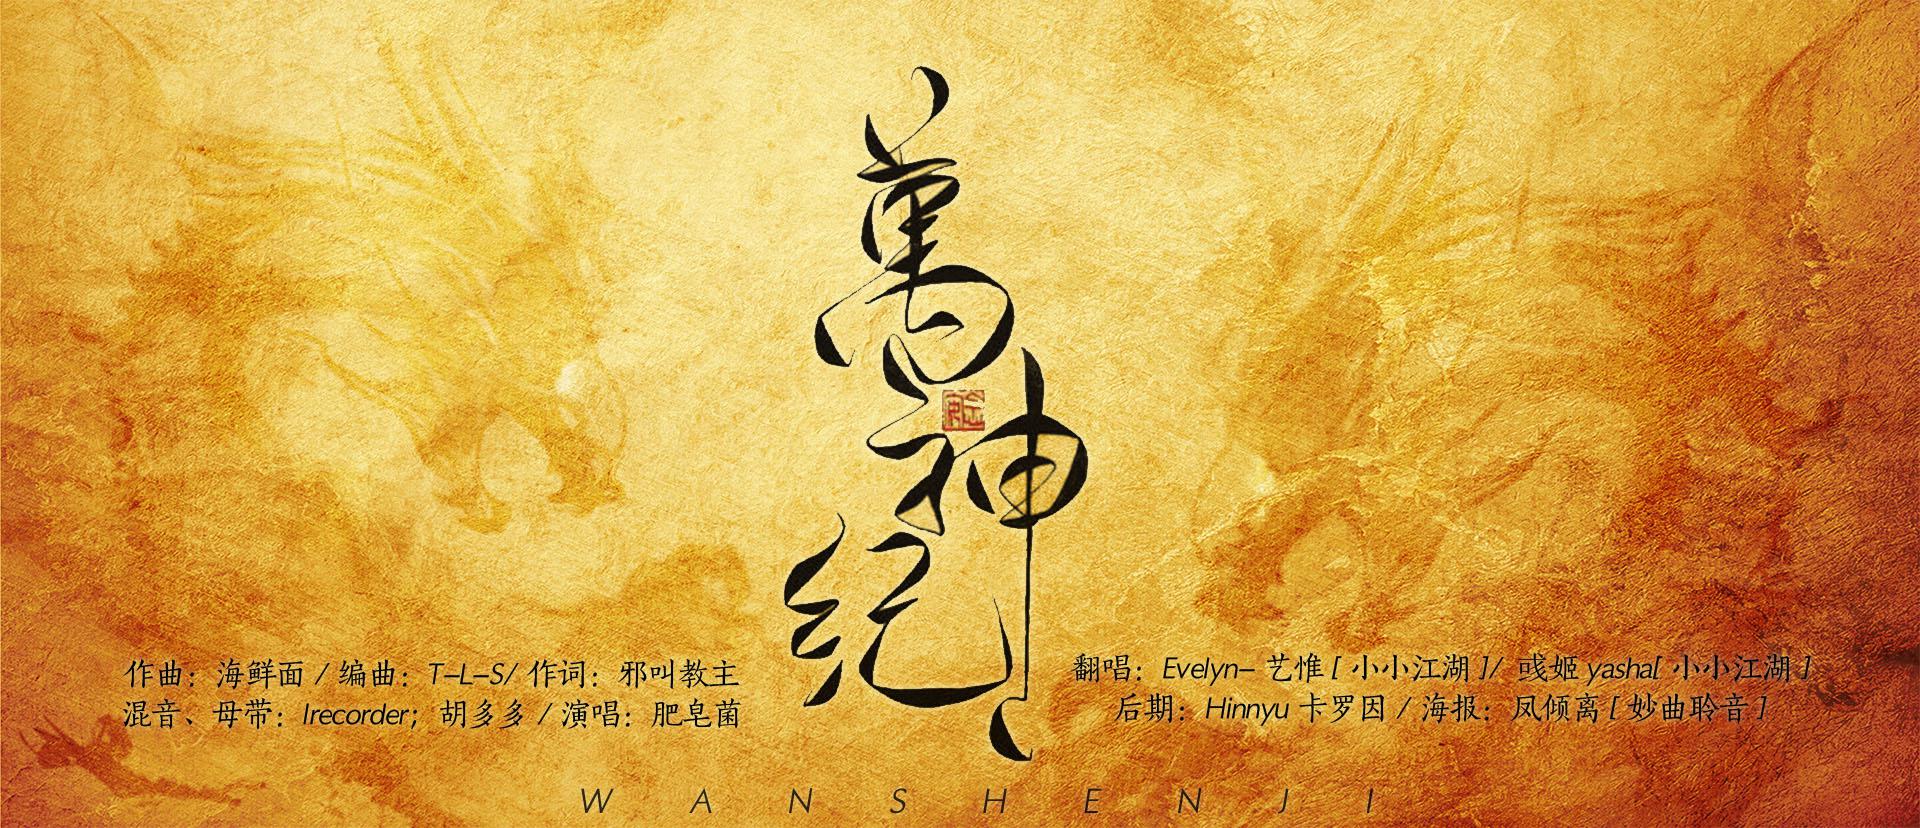 萬神纪
作曲：海鲜面 / 编曲：T-L-S/ 作词：邪叫教主
混音、母带：Irecorder；胡多多 / 演唱：肥皂菌
翻唱：Evelyn- 艺惟 [ 小小江湖 ]/ 彧姬 yasha[ 小小江湖 ]
后期：Hinnyu 卡罗因 / 海报：凤倾离 [ 妙曲聆音 ]
WANSHENJI